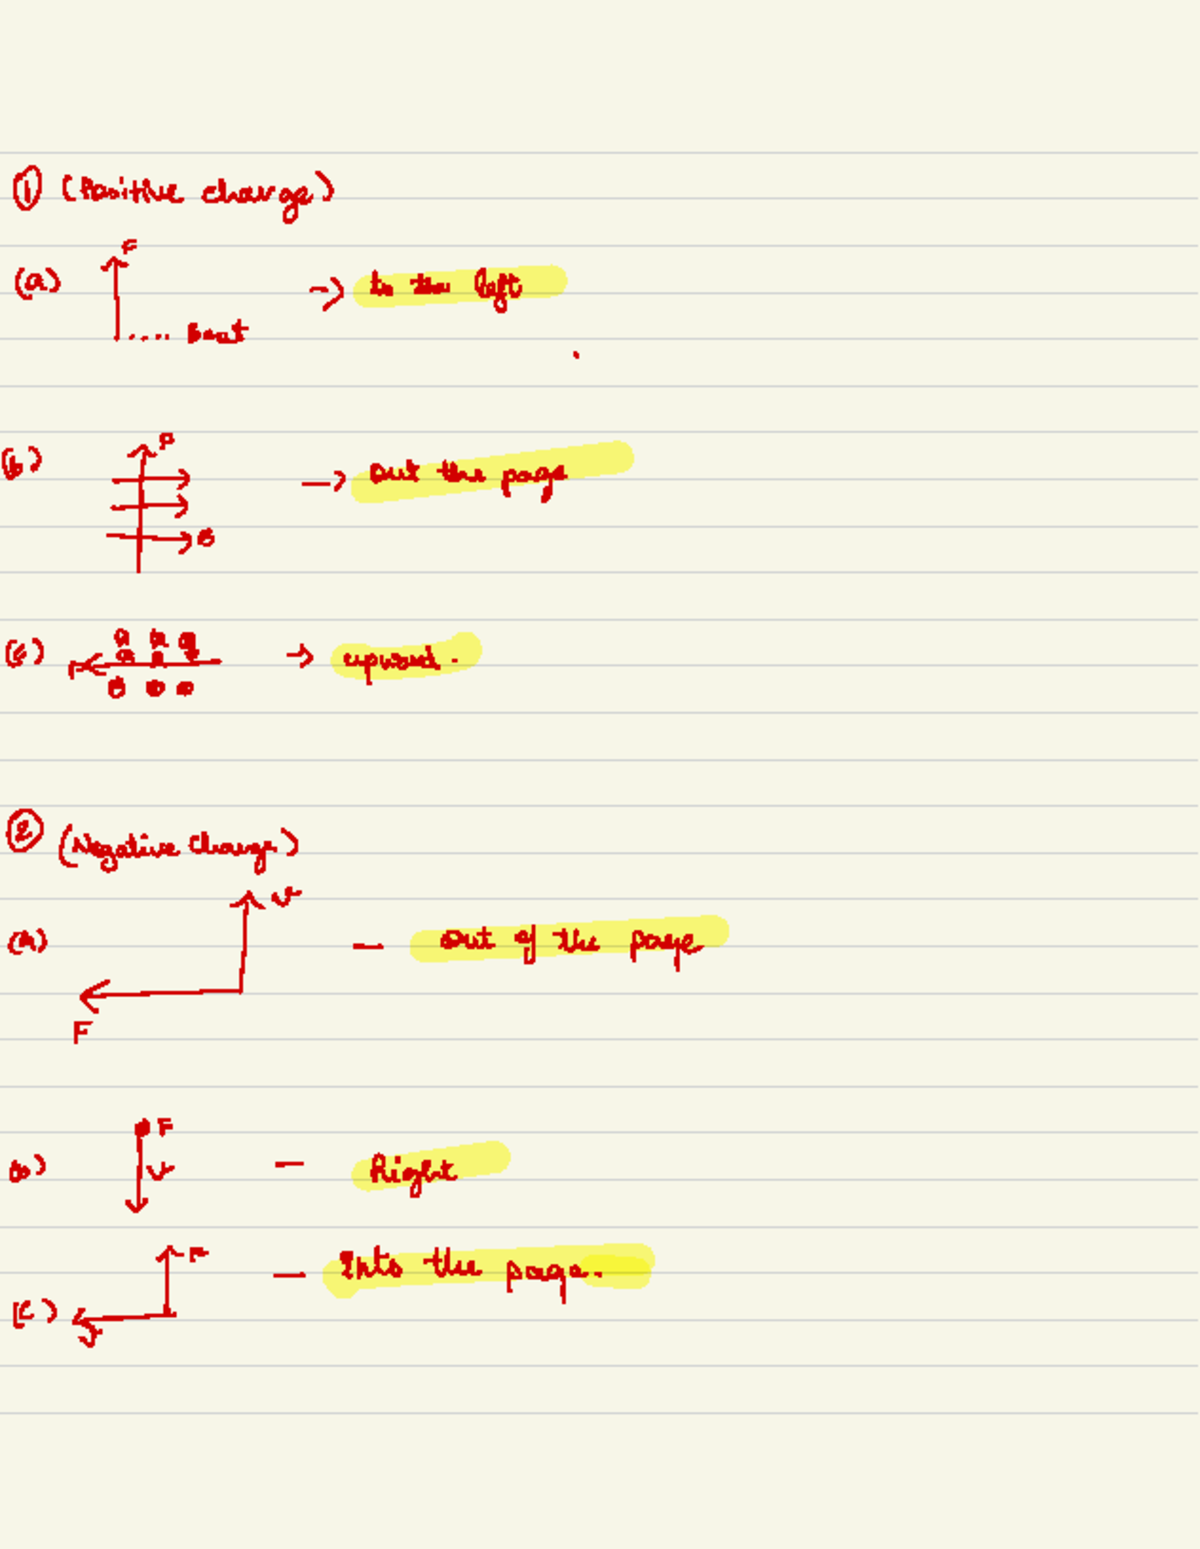 ① (Positive charge)
(a) F → to the left
.... Bout
(b) F → Out the page
B
(c) → upward.
② (Negative Charge)
(A) v - Out of the page
F
b) F
v - Right
(c) F - Into the page.